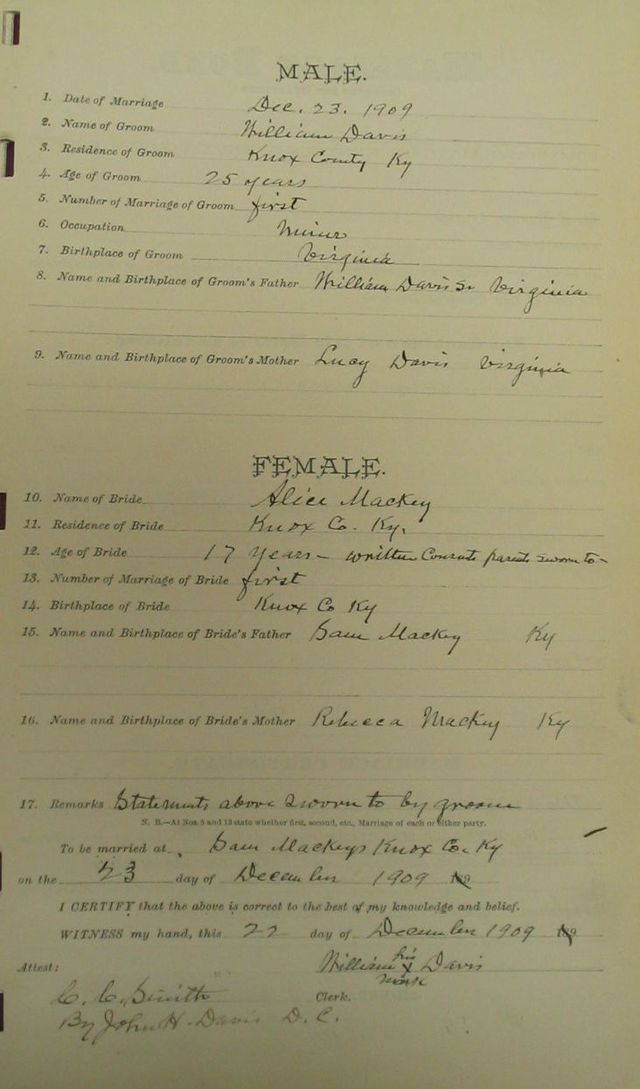 MALE.
1. Date of Marriage Dec. 23. 1909
2. Name of Groom William Davis
3. Residence of Groom Knox County Ky
4. Age of Groom 25 years
5. Number of Marriage of Groom first
6. Occupation Miner
7. Birthplace of Groom Virginia
8. Name and Birthplace of Groom's Father William Davis Sr Virginia
9. Name and Birthplace of Groom's Mother Lucy Davis Virginia
FEMALE.
10. Name of Bride Alice Mackey
11. Residence of Bride Knox Co. Ky.
12. Age of Bride 17 years - written Consents parents sworn to -
13. Number of Marriage of Bride first
14. Birthplace of Bride Knox Co Ky
15. Name and Birthplace of Bride's Father Sam Mackey Ky
16. Name and Birthplace of Bride's Mother Rebecca Mackey Ky
17. Remarks Statements above sworn to by groom
N. B.—At Nos. 5 and 13 state whether first, second, etc., Marriage of each or either party.
To be married at Sam Mackeys Knox Co. Ky
on the 23 day of December 1909 189
I CERTIFY that the above is correct to the best of my knowledge and belief.
WITNESS my hand, this 22 day of December 1909 189
his
William x Davis
mark
Attest:
C. C. Smith Clerk.
By John H. Davis D. C.